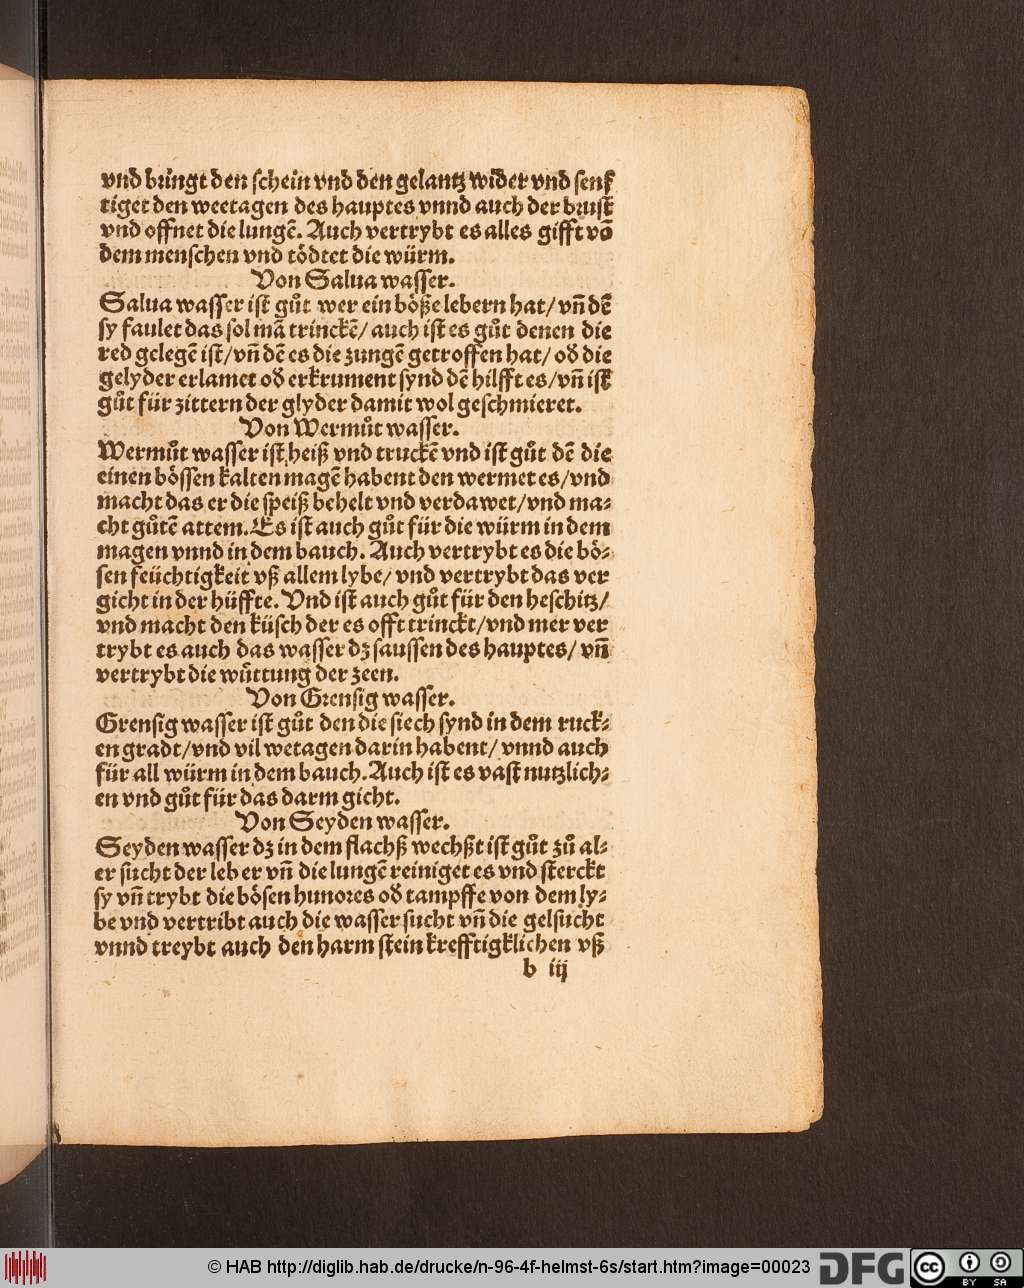 vnd bringt den schein vnd den gelantz wider vnd senf
tiget den weetagen des hauptes vnnd auch der brust
vnd offnet die lungē. Auch vertrybt es alles gifft vō
dem menschen vnd tödtet die würm.
Von Salua wasser.
Salua wasser ist gůt wer ein böße lebern hat/ vñ dē
sy faulet das sol mā trinckē/ auch ist es gůt denen die
red gelegē ist/ vñ dē es die zungē getroffen hat/ od die
gelyder erlamet od erkrument synd dē hilfft es/ vñ ist
gůt für zittern der glyder damit wol geschmieret.
Von Wermůt wasser.
Wermůt wasser ist heiß vnd truckē vnd ist gůt dē die
einen bössen kalten magē habent den wermet es/ vnd
macht das er die speiß behelt vnd verdawet/ vnd ma⸗
cht gůtē attem. Es ist auch gůt für die würm in dem
magen vnnd in dem bauch. Auch vertrybt es die bö⸗
sen feüchtigkeit vß allem lybe/ vnd vertrybt das ver
gicht in der hüffte. Vnd ist auch gůt für den heschitz/
vnd macht den küsch der es offt trinckt/ vnd mer ver
trybt es auch das wasser dz saussen des hauptes/ vñ
vertrybt die wůttung der zeen.
Von Grensig wasser.
Grensig wasser ist gůt den die siech synd in dem ruck⸗
en gradt/ vnd vil wetagen darin habent/ vnnd auch
für all würm in dem bauch. Auch ist es vast nutzlich⸗
en vnd gůt für das darm gicht.
Von Seyden wasser.
Seyden wasser dz in dem flachß wechßt ist gůt zů al⸗
er sucht der leber vñ die lungē reiniget es vnd sterckt
sy vñ trybt die bösen humores od tampffe von dem ly⸗
be vnd vertribt auch die wasser sucht vñ die gelsucht
vnnd treybt auch den harm stein krefftigklichen vß
b iij
© HAB http://diglib.hab.de/drucke/n-96-4f-helmst-6s/start.htm?image=00023
DFG
cc BY SA